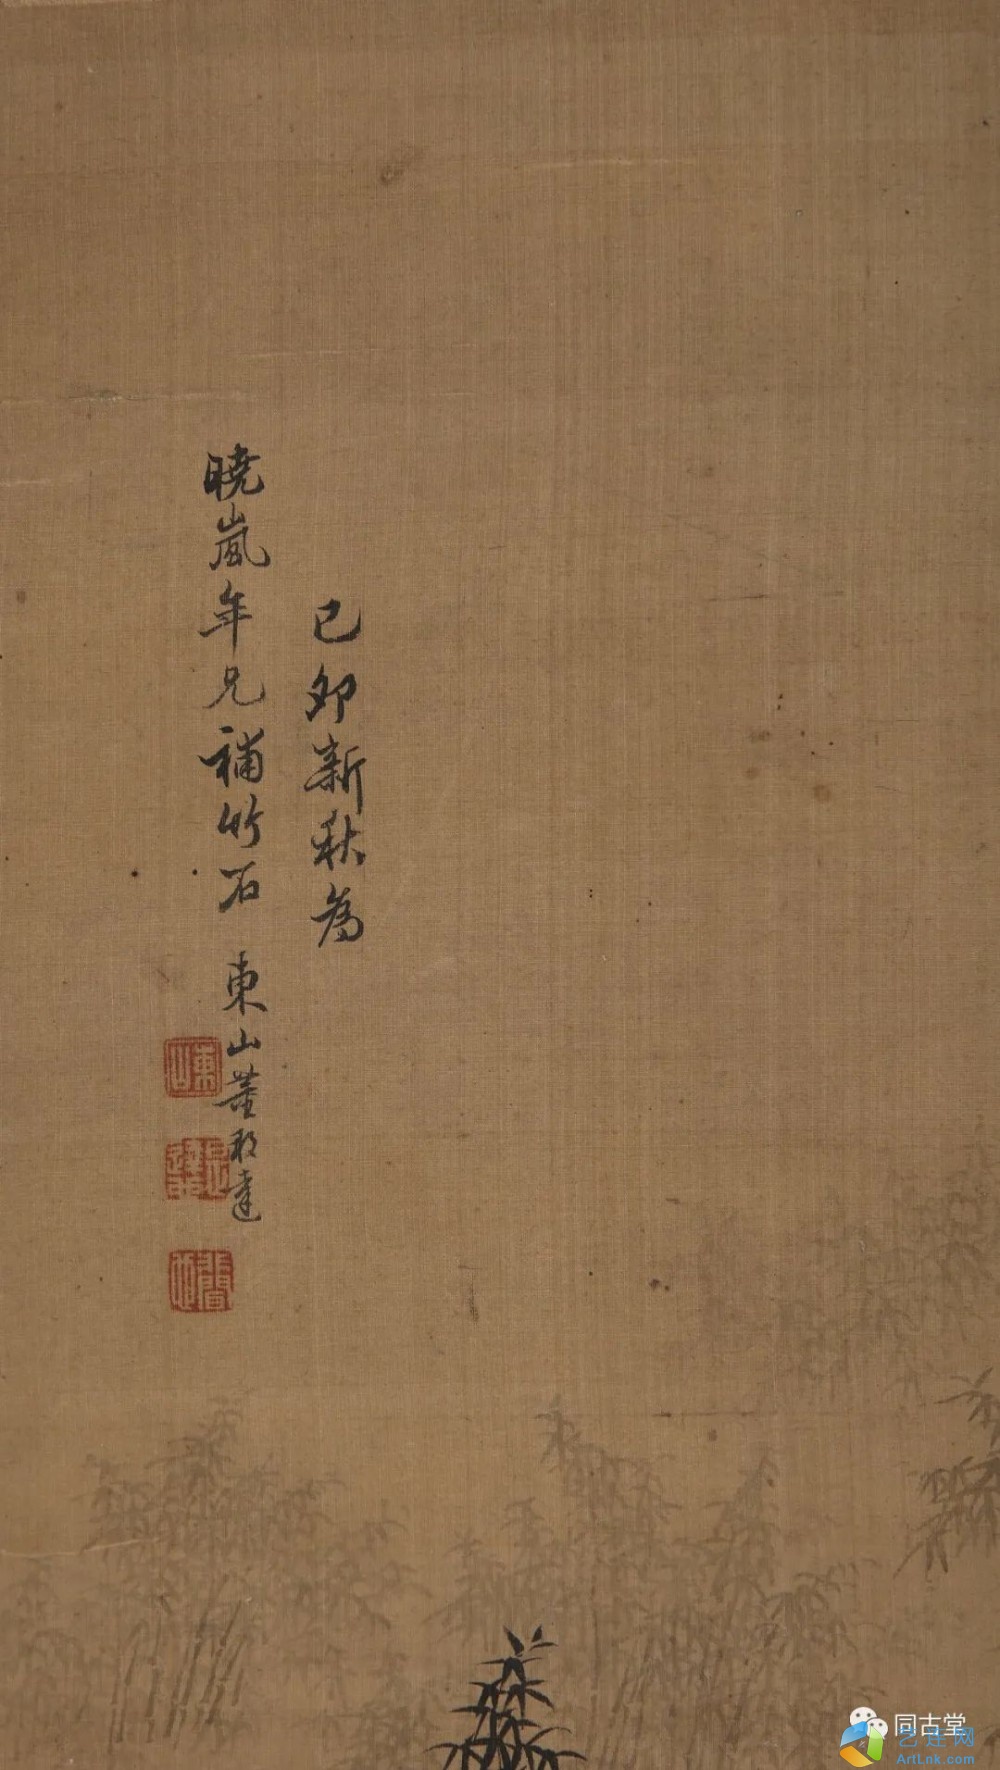 己卯新秋為
曉嵐年兄補竹石 東山董邦達
東山
同古堂
艺连网
ArtLnk.com